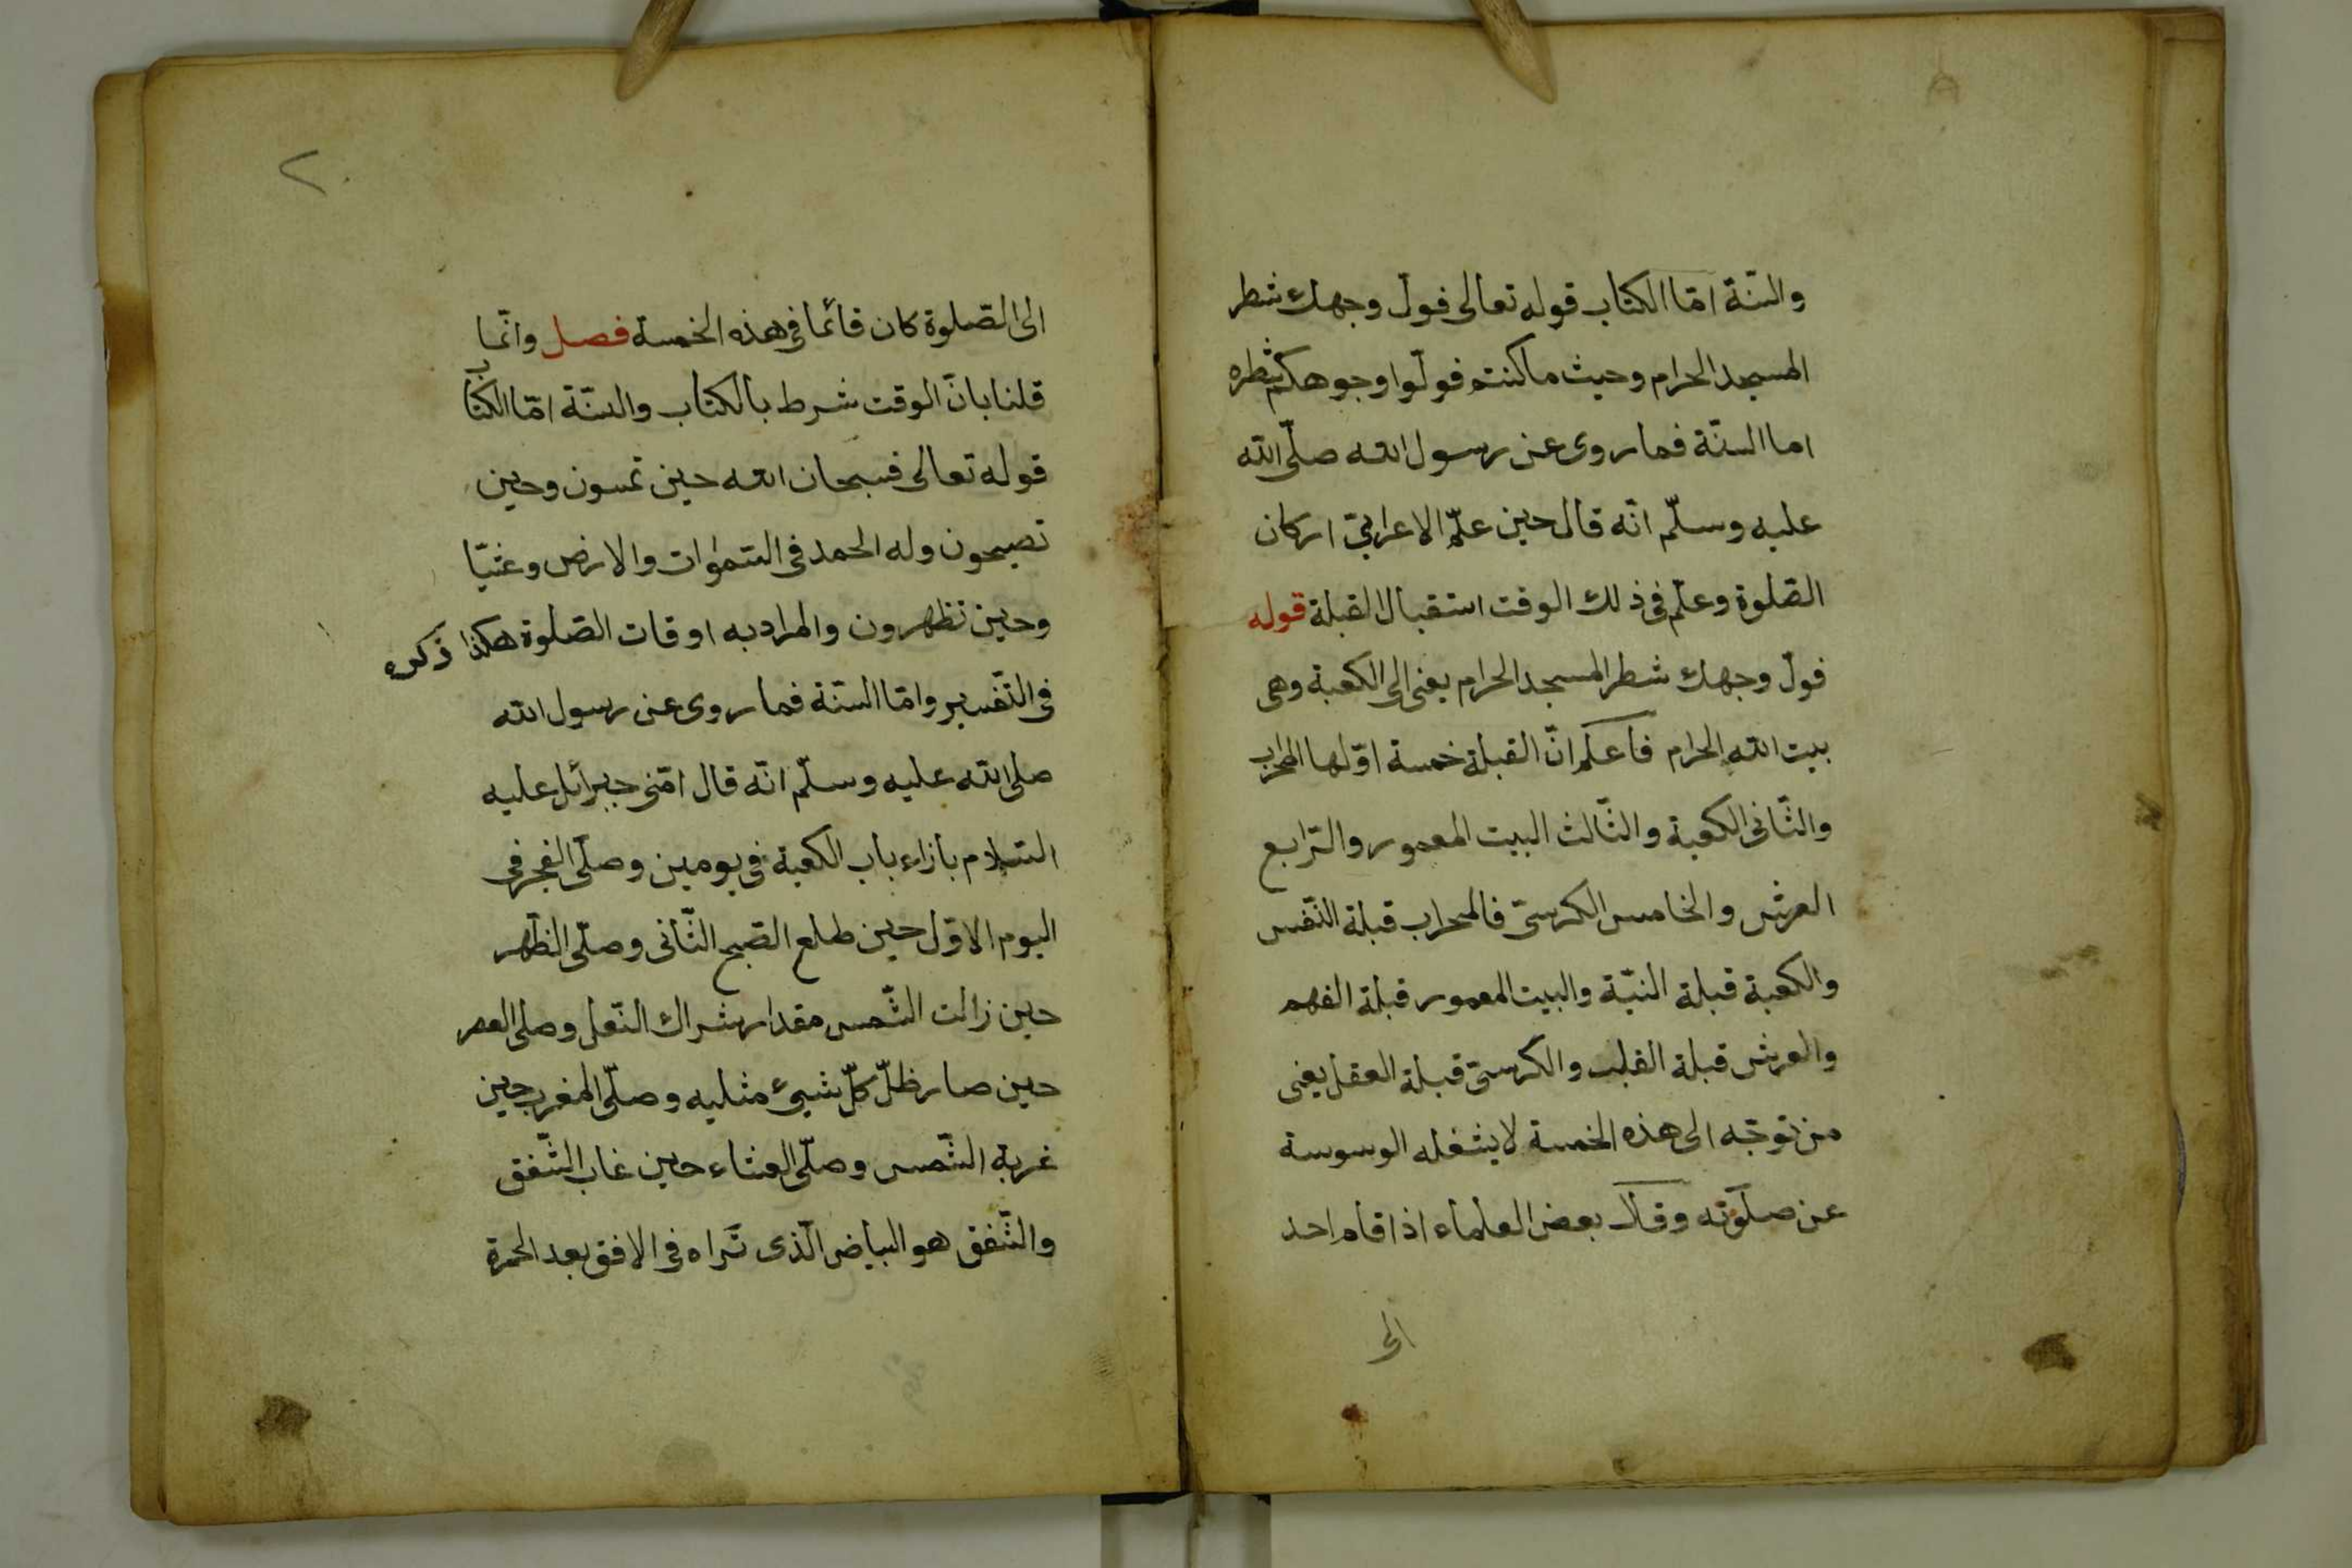 والسّنة امّا الكتاب قوله تعالى فولّ وجهك شطر
المسجد الحرام وحيث ماكنتم فولّوا وجوهكم شطره
اما السنّة فما روى عن رسول الله صلّى الله
عليه وسلّم انّه قال حين علّم الاعرابىّ اركان
الصّلوة وعلّم فى ذلك الوقت استقبال القبلة قوله
فولّ وجهك شطر المسجد الحرام يعنى الى الكعبة وهى
بيت الله الحرام فاعلم انّ القبلة خمسة اوّلها المحراب
والثّانى الكعبة والثّالث البيت المعمور والرّابع
العرش والخامس الكرسىّ فالمحراب قبلة النّفس
والكعبة قبلة النيّة والبيت المعمور قبلة الفهم
والعرش قبلة القلب والكرسىّ قبلة العقل يعنى
من توجّه الى هذه الخمسة لا يشغله الوسوسة
عن صلوته وقال بعض العلماء اذا قام احد
الى
٢٠
الى الصّلوة كان قائما فى هذه الخمسة فصل وانّما
قلنا بانّ الوقت شرط بالكتاب والسنّة امّا الكتاب
قوله تعالى فسبحان الله حين تمسون وحين
تصبحون وله الحمد فى السّموات والارض وعشيّا
وحين تظهرون والمراد به اوقات الصّلوة هكذا ذكره
فى التّفسير وامّا السنّة فما روى عن رسول الله
صلى الله عليه وسلّم انّه قال امّنى جبرائل عليه
السّلام بازاء باب الكعبة فى يومين وصلّى الفجر فى
اليوم الاوّل حين طلع الصّبح الثّانى وصلّى الظّهر
حين زالت الشّمس مقدار شراك النّعل وصلى العصر
حين صار ظلّ كلّ شيئ مثليه وصلّى المغرب حين
غربة الشّمس وصلّى العشاء حين غاب الشّفق
والشّفق هو البياض الّذى تراه فى الافق بعد الحمرة